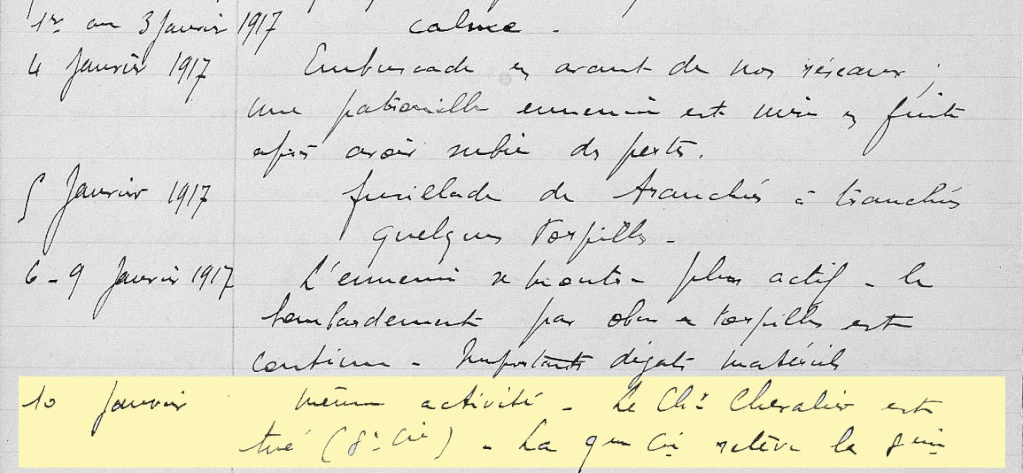 1er au 3 Janvier 1917 calme -
4 Janvier 1917 Embuscade en avant de nos réseaux ;
une patrouille ennemie est mise en fuite
après avoir subie des pertes.
5 Janvier 1917 fusillade de tranchées à tranchées
quelques torpilles -
6 - 9 Janvier 1917 L'ennemi se montre plus actif - le
bombardement par obus et torpilles est
continu - Importants dégats matériels
10 Janvier même activité - Le Chr Chevalier est
tué (8e Cie) - La 9me Cie relève la 8me